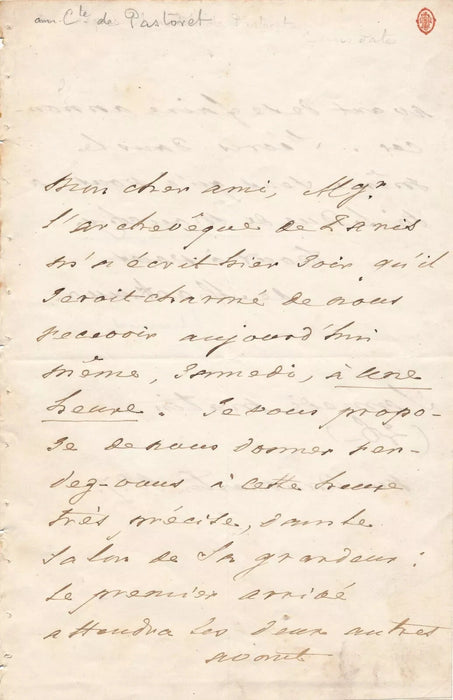 au Cte de Pastoret
Mon cher ami, Mgr
l'archevêque de Paris
m'a écrit hier soir qu'il
seroit charmé de nous
recevoir aujourd'hui
même, samedi, à une
heure. Je vous propo-
se de nous donner ren-
dez-vous à cette heure
très précise, dans le
salon de Sa grandeur :
le premier arrivé
attendra les deux autres
avant